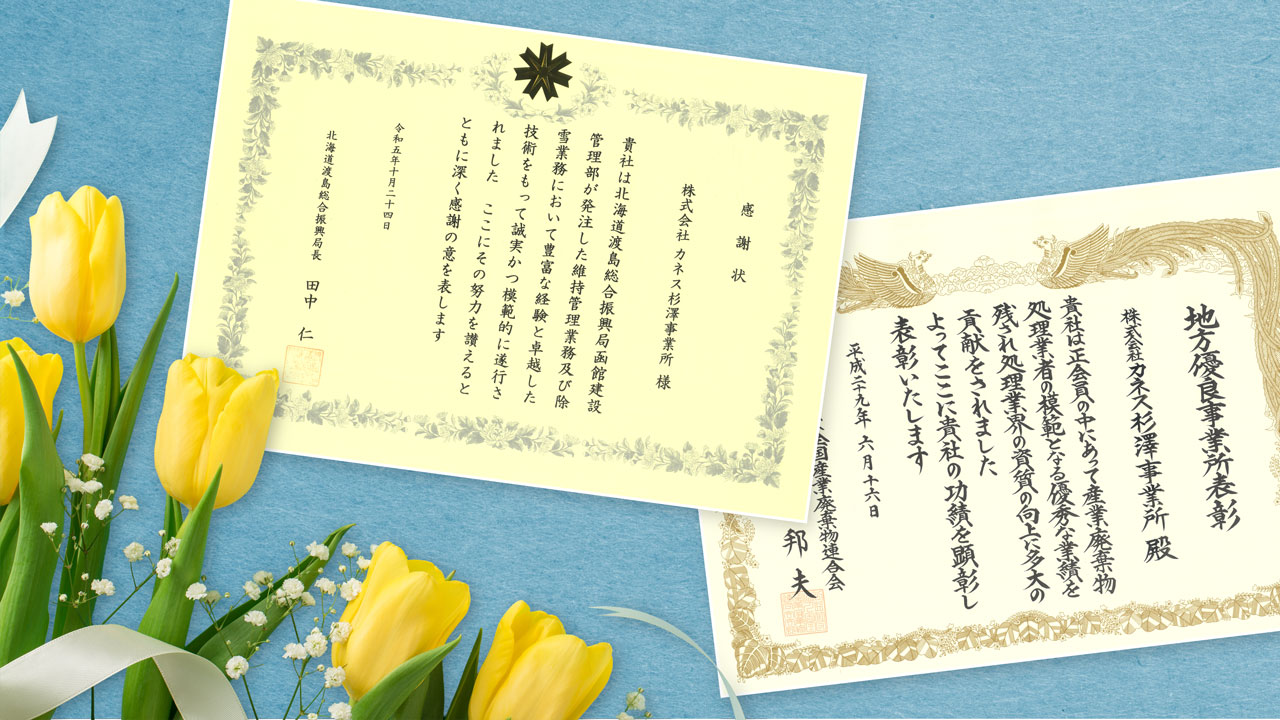 感謝状
株式会社 カネス杉澤事業所 様
貴社は北海道渡島総合振興局函館建設
管理部が発注した維持管理業務及び除
雪業務において豊富な経験と卓越した
技術をもって誠実かつ模範的に遂行さ
れました ここにその努力を讃えると
ともに深く感謝の意を表します
令和五年十月二十四日
北海道渡島総合振興局長 田中 仁
地方優良事業所表彰
株式会社カネス杉澤事業所 殿
貴社は正会員の中にあって産業廃棄物
処理業者の模範となる優秀な業績を
残され処理業界の資質の向上に多大の
貢献をされました
よってここに貴社の功績を顕彰し
表彰いたします
平成二十九年 六月十六日
全国産業廃棄物連合会
邦夫